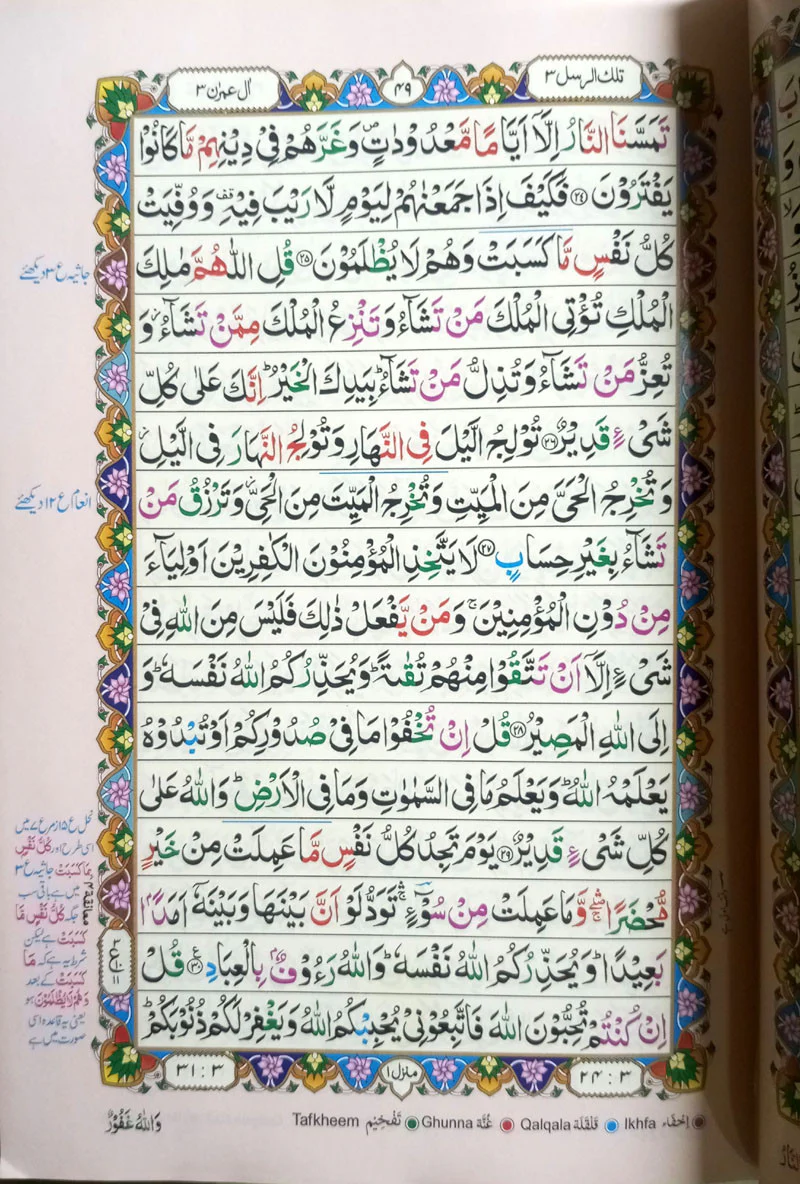 تلك الرسل ٣
٤٩
اٰل عمرٰن ٣
تَمَسَّنَا النَّارُ اِلَّاۤ اَيَّامًا مَّعْدُوْدٰتٍ۪ وَغَرَّهُمْ فِىْ دِيْنِهِمْ مَّا كَانُوْا
يَفْتَرُوْنَ ﴿۲۴﴾ فَكَيْفَ اِذَا جَمَعْنٰهُمْ لِيَوْمٍ لَّا رَيْبَ فِيْهِ قف وَوُفِّيَتْ
كُلُّ نَفْسٍ مَّا كَسَبَتْ وَهُمْ لَا يُظْلَمُوْنَ ﴿۲۵﴾ قُلِ اللّٰهُمَّ مٰلِكَ
الْمُلْكِ تُؤْتِى الْمُلْكَ مَنْ تَشَآءُ وَتَنْزِعُ الْمُلْكَ مِمَّنْ تَشَآءُ ز وَ
تُعِزُّ مَنْ تَشَآءُ وَتُذِلُّ مَنْ تَشَآءُ ؕ بِيَدِكَ الْخَيْرُ ؕ اِنَّكَ عَلٰى كُلِّ
شَىْءٍ قَدِيْرٌ ﴿۲۶﴾ تُوْلِجُ الَّيْلَ فِى النَّهَارِ وَتُوْلِجُ النَّهَارَ فِى الَّيْلِ ز
وَتُخْرِجُ الْحَىَّ مِنَ الْمَيِّتِ وَتُخْرِجُ الْمَيِّتَ مِنَ الْحَىِّ ز وَتَرْزُقُ مَنْ
تَشَآءُ بِغَيْرِ حِسَابٍ ﴿۲۷﴾ لَا يَتَّخِذِ الْمُؤْمِنُوْنَ الْكٰفِرِيْنَ اَوْلِيَآءَ
مِنْ دُوْنِ الْمُؤْمِنِيْنَ ۚ وَمَنْ يَّفْعَلْ ذٰلِكَ فَلَيْسَ مِنَ اللّٰهِ فِىْ
شَىْءٍ اِلَّاۤ اَنْ تَتَّقُوْا مِنْهُمْ تُقٰىةً ؕ وَيُحَذِّرُكُمُ اللّٰهُ نَفْسَهٗ ؕ وَ
اِلَى اللّٰهِ الْمَصِيْرُ ﴿۲۸﴾ قُلْ اِنْ تُخْفُوْا مَا فِىْ صُدُوْرِكُمْ اَوْ تُبْدُوْهُ
يَعْلَمْهُ اللّٰهُ ؕ وَيَعْلَمُ مَا فِى السَّمٰوٰتِ وَمَا فِى الْاَرْضِ ؕ وَاللّٰهُ عَلٰى
كُلِّ شَىْءٍ قَدِيْرٌ ﴿۲۹﴾ يَوْمَ تَجِدُ كُلُّ نَفْسٍ مَّا عَمِلَتْ مِنْ خَيْرٍ
مُّحْضَرًا ۛۖۚ وَّمَا عَمِلَتْ مِنْ سُوْٓءٍ ۛۚ تَوَدُّ لَوْ اَنَّ بَيْنَهَا وَبَيْنَهٗۤ اَمَدًۢا
بَعِيْدًا ؕ وَيُحَذِّرُكُمُ اللّٰهُ نَفْسَهٗ ؕ وَاللّٰهُ رَءُوْفٌۢ بِالْعِبَادِ ﴿۳۰﴾ قُلْ
اِنْ كُنْتُمْ تُحِبُّوْنَ اللّٰهَ فَاتَّبِعُوْنِىْ يُحْبِبْكُمُ اللّٰهُ وَيَغْفِرْ لَكُمْ ذُنُوْبَكُمْ ؕ
جاثیہ ع ٣ دیکھئے
انعام ع ١٢ دیکھئے
اسی طرح اور كُلُّ نَفْسٍ
بِمَا كَسَبَتْ جاثیہ ع ٣
میں ہے باقی سب
جگہ كُلُّ نَفْسٍ مَّا
كَسَبَتْ ہے لیکن
شرط یہ ہے کہ مَا
كَسَبَتْ کے بعد
وَهُمْ لَا يُظْلَمُوْنَ ہو
یعنی یہ قاعدہ اسی
صورت میں ہے
٢٤ : ٣
منزل ١
٣١ : ٣
وَاللّٰهُ غَفُوْرٌ
Tafkheem تَفْخِيْم Ghunna غُنَّة Qalqala قَلْقَلَة Ikhfa اِخْفَاء